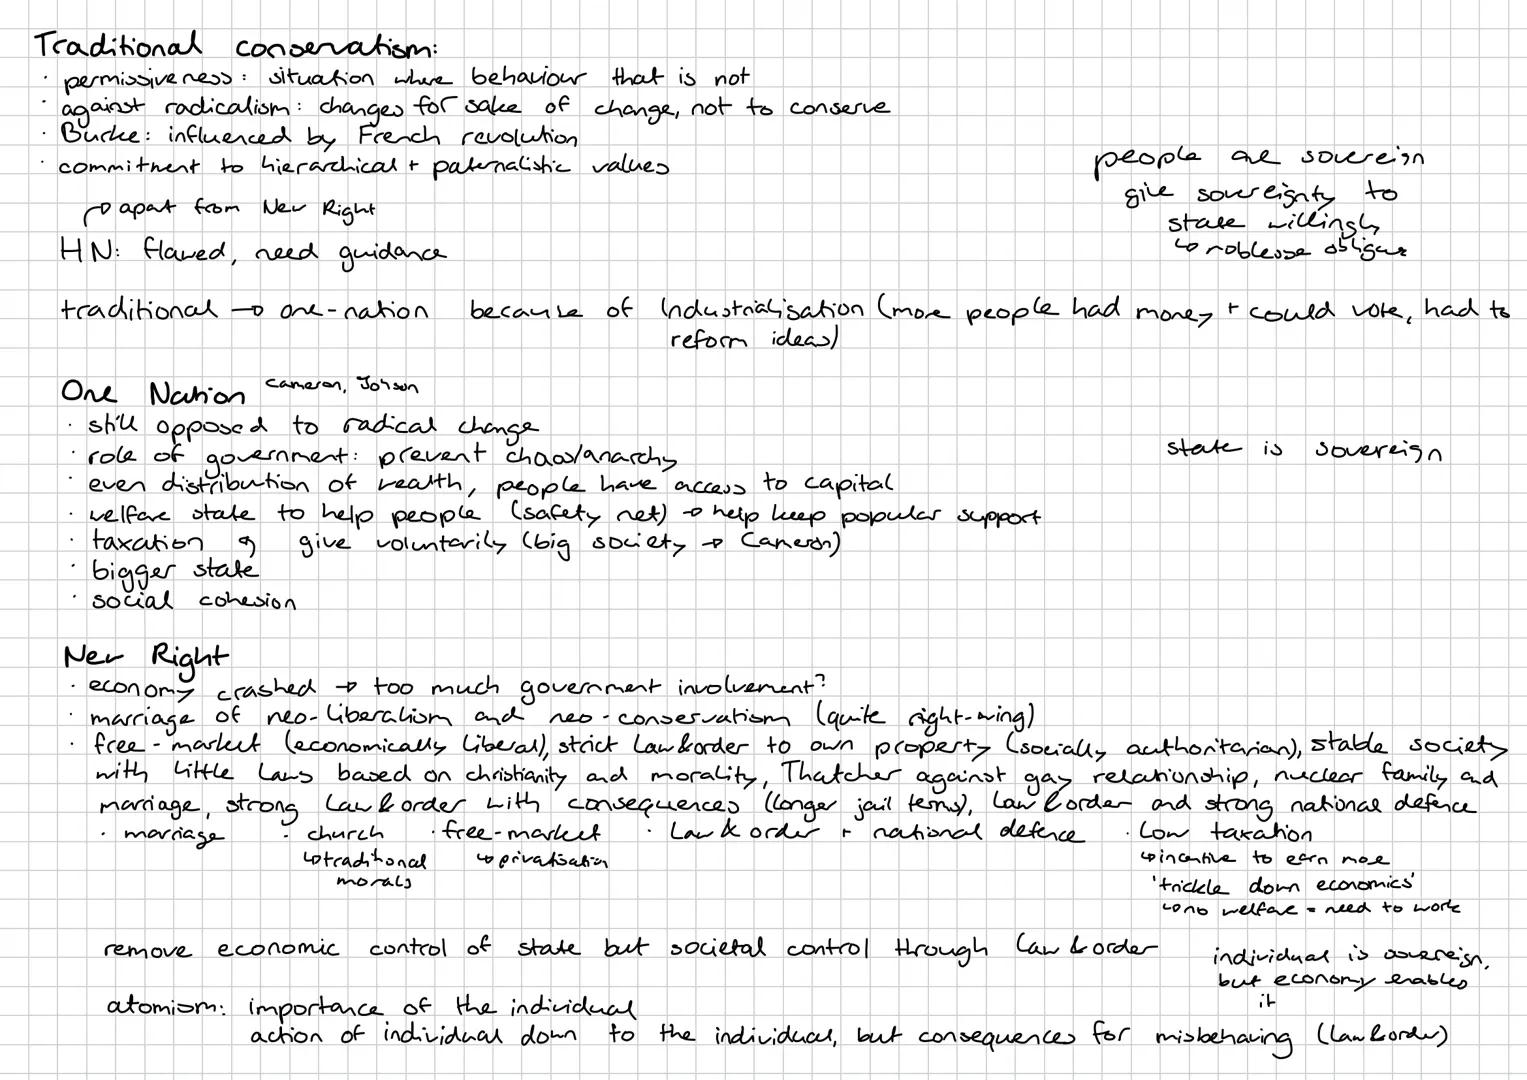 Traditional conservatism:
· permissiveness: situation where behaviour that is not
· against radicalism: changes for sake of change, not to conserve
· Burke: influenced by French revolution
· commitment to hierarchical + paternalistic values
people are sovereign
give sovereignty to
state willingly
↳ noblesse oblige
↱ apart from New Right
HN: flawed, need guidance
traditional → one-nation because of Industrialisation (more people had money + could vote, had to
reform ideas)
One Nation Cameron, Johson
· still opposed to radical change
· role of government: prevent chaos/anarchy
state is sovereign
· even distribution of wealth, people have access to capital
· welfare state to help people (safety net) → help keep popular support
· taxation give voluntarily (big society → Cameron)
· bigger state
· social cohesion
New Right
· economy crashed → too much government involvement?
· marriage of neo-liberalism and neo-conservatism (quite right-wing)
· free-market (economically liberal), strict law&order to own property (socially authoritarian), stable society
with little laws based on christianity and morality, Thatcher against gay relationship, nuclear family and
marriage, strong law & order with consequences (longer jail terms), law & order and strong national defence
· marriage · church · free-market · law & order + national defence · low taxation
↳ traditional ↳ privatisation ↳ incentive to earn more
morals 'trickle down economics'
↳ no welfare = need to work
remove economic control of state but societal control through law & order
individual is sovereign,
but economy enables
it
atomism: importance of the individual
action of individual down to the individual, but consequences for misbehaving (law&order)